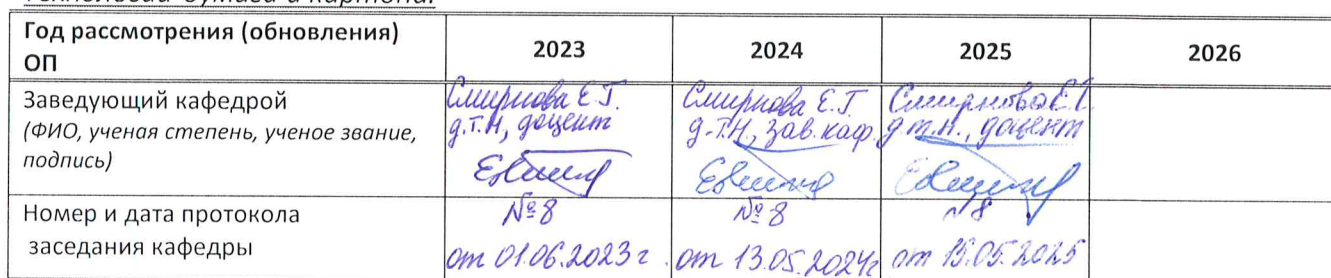 технологии бумаги и картона.
Год рассмотрения (обновления) ОП 2023 2024 2025 2026
Заведующий кафедрой
(ФИО, ученая степень, ученое звание, подпись)
Смирнова Е.Г.
д.т.н, доцент
Смирнова Е.Г.
д.т.н, зав. каф.
Смирнова Е.Г.
д.т.н., доцент
Номер и дата протокола
заседания кафедры
№8
от 01.06.2023г.
№8
от 13.05.2024г
№8
от 15.05.2025